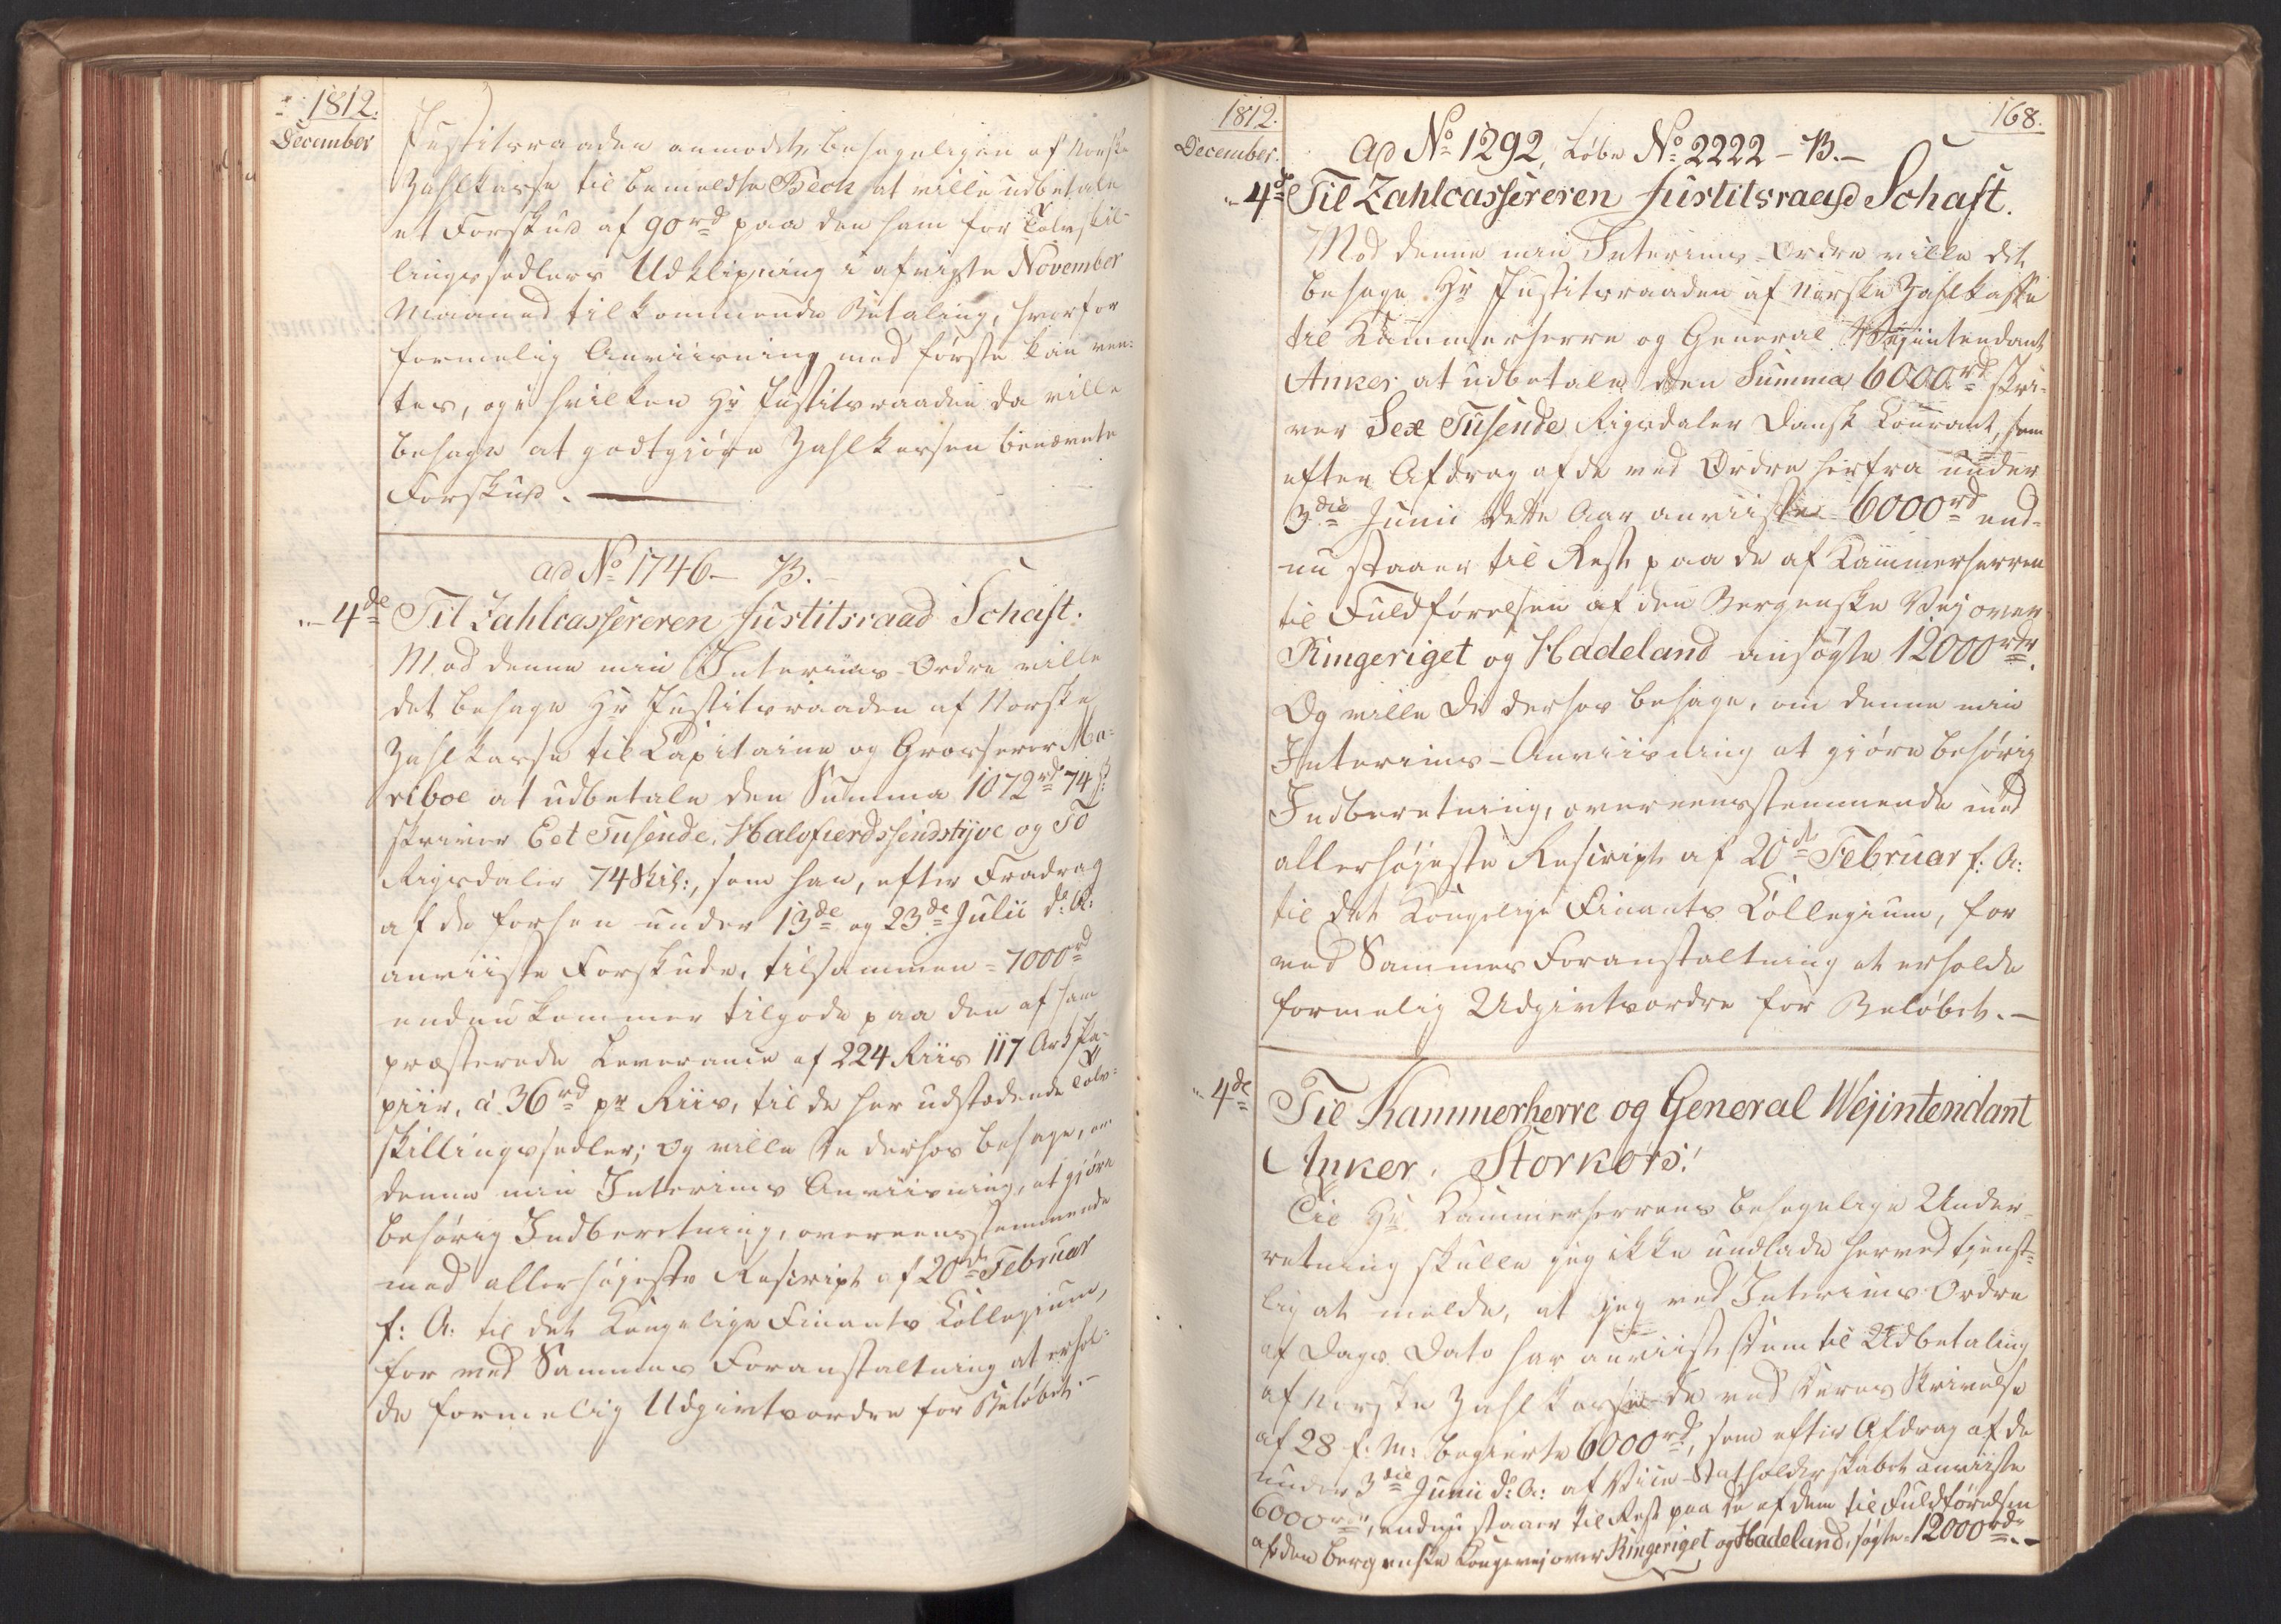 1812.
December
Justitsraaden anmodes behageligen af Norske
Zahlkasse til bemeldte Beck at ville udbetale
et Forskud af 90rd paa den ham for Tolvskil-
lingssedlers Udklipning i afvigte November
Maaned tilkommende Betaling, hvorfor
formelig Anviisning med første kan ven-
tes, og i hvilken Hr Justitsraaden da ville
behage at godtgjøre Zahlkassen benævnte
Forskud.
ad No 1746 - B.
- 4de Til Zahlcassereren Justitsraad Schaft.
Mod denne min Interims-Ordre ville
det behage Hr Justitsraaden af Norske
Zahlkasse til Capitaine og Grosserer Ma-
riboe at udbetale den Summa 1072rd 74 s
skriver Eet Tusende, Halvfierdssindstyve og To
Rigsdaler 74 Skil:, som han, efter Fradrag
af de forhen under 13de og 23de Julii d: A:
anviiste Forskude, tilsammen = 7000rd
endnu kommer tilgode paa den af ham
præsterede Leverance af 224 Riis 117 Ark Pa-
piir, á 36rd pr Riis, til de her udstædende Tolv-
skillingssedler; Og ville De derhos behage, om
denne min Interims Anviisning, at gjøre
behørig Indberetning, overeensstemmende
med allerhøjeste Rescript af 20de Februar
f: A: til det Kongelige Finants Collegium,
for ved Sammes Foranstaltning at erhol-
de formelig Udgivtsordre for Beløbet. -
1812.
December.
168.
Ad No 1292, Løbe No 2222 - B. -
- 4de Til Zahlcassereren Justitsraad Schaft.
Mod denne min Interims-Ordre ville det
behage Hr Justitsraaden af Norske Zahlkasse
til Kammerherre og General Vejintendant
Anker at udbetale den Summa 6000rd skri-
ver Sex Tusende Rigsdaler Dansk Courant, som
efter Afdrag af de ved Ordre herfra under
3die Junii dette Aar anviiste 6000rd end-
nu staaer til Rest paa de af Kammerherren
til Fuldførelsen af den Bergenske Vej over
Ringeriget og Hadeland ansøgte 12000rdr.
Og ville De derhos behage, om denne min
Interims-Anviisning at gjøre behørig
Indberetning, overeensstemmende med
allerhøjeste Rescript af 20de Februar f: A:
til det Kongelige Finants Collegium, for
ved Sammes Foranstaltning at erholde
formelig Udgivtsordre for Beløbet. -
- 4de Til Kammerherre og General Wejintendant
Anker. Storkors!
Til Hr Kammerherrens behagelige Under-
retning skulle jeg ikke undlade herved tjenst-
lig at melde, at jeg ved Interims Ordre
af Dags Dato har anviist Dem til Udbetaling
af Norske Zahlkasse de ved Deres Skrivelse
af 28 f: M: begierte 6000rd, som efter Afdrag af de
under 3die Junii d: A: af Vice-Statholderskabet anviiste
6000rdr, endnu staaer til Rest paa de af Dem til Fuldførelsen
af den bergenske Kongevej over Ringeriget og Hadeland, søgte 12000rdr. -